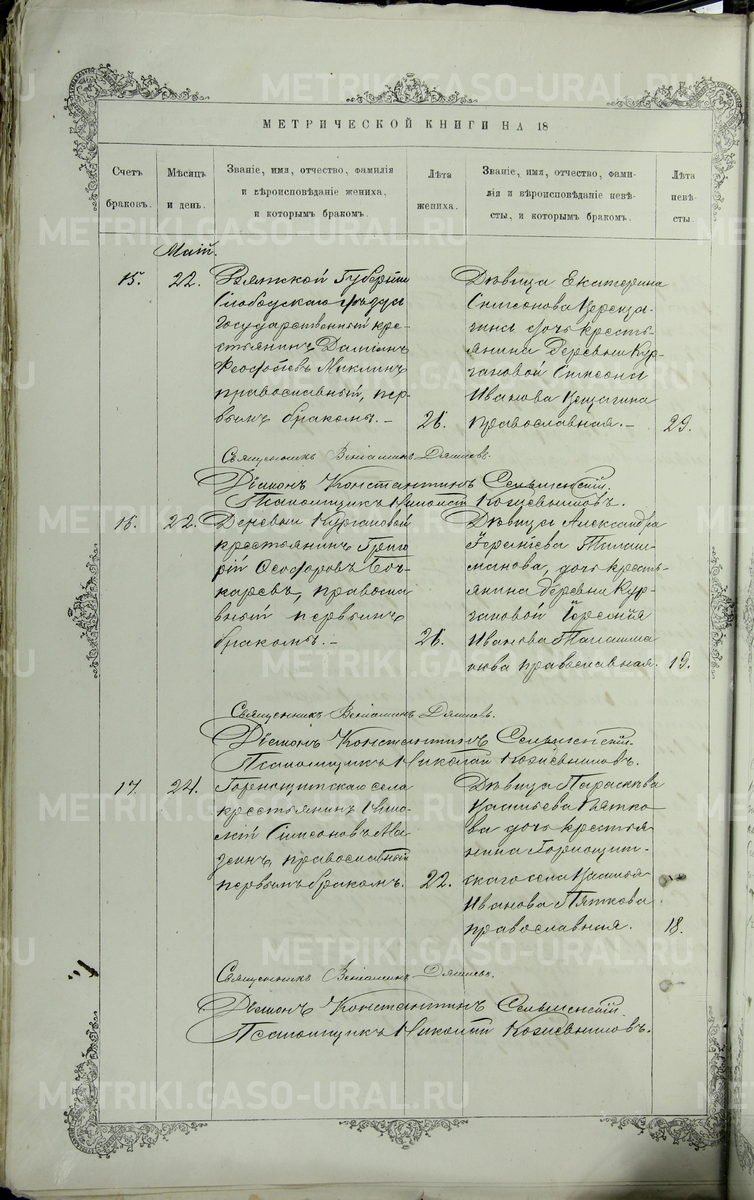 МЕТРИЧЕСКОЙ КНИГИ НА 18
Счетъ
браковъ.
Мѣсяцъ
и день.
Званіе, имя, отчество, фамилія
и вѣроисповѣданіе жениха,
и которымъ бракомъ.
Лѣта
жениха.
Званіе, имя, отчество, фами-
лія и вѣроисповѣданіе невѣ-
сты, и которымъ бракомъ.
Лѣта
невѣ-
сты.
Маій.
15.
22.
Вятской Губерніи
Слободскаго уѣзда
Государственный кре-
стьянинъ Даміанъ
Ѳеофиловъ Миклинъ
православный, пер-
вымъ бракомъ.
26.
Дѣвица Екатерина
Симеонова
дочь кресть-
янина деревни Кур-
гановой Симеона
Иванова
православная.
29.
Священникъ Веніаминъ
Діаконъ Константинъ Сельменскій.
Псаломщикъ Николай Кожевниковъ.
16.
22.
Деревни Кургановой
крестьянинъ Григо-
рій Ѳеодоровъ Боч-
каревъ, правосла-
вный первымъ
бракомъ.
26.
Дѣвица Александра
Іереміева Талаш-
манова, дочь кресть-
янина деревни Кур-
гановой Іереміи
Иванова Талашма-
нова православная.
19.
Священникъ Веніаминъ
Діаконъ Константинъ Сельменскій.
Псаломщикъ Николай Кожевниковъ.
17.
24.
Горнощитскаго села
крестьянинъ Нико-
лай Симеоновъ Ма-
зеинъ, православный
первымъ бракомъ.
22.
Дѣвица Параскева
Васильева Пятко-
ва дочь крестья-
нина Горнощит-
скаго села Василья
Иванова Пяткова
православная.
18.
Священникъ Веніаминъ
Діаконъ Константинъ Сельменскій.
Псаломщикъ Николай Кожевниковъ.
METRIKI.GASO-URAL.RU